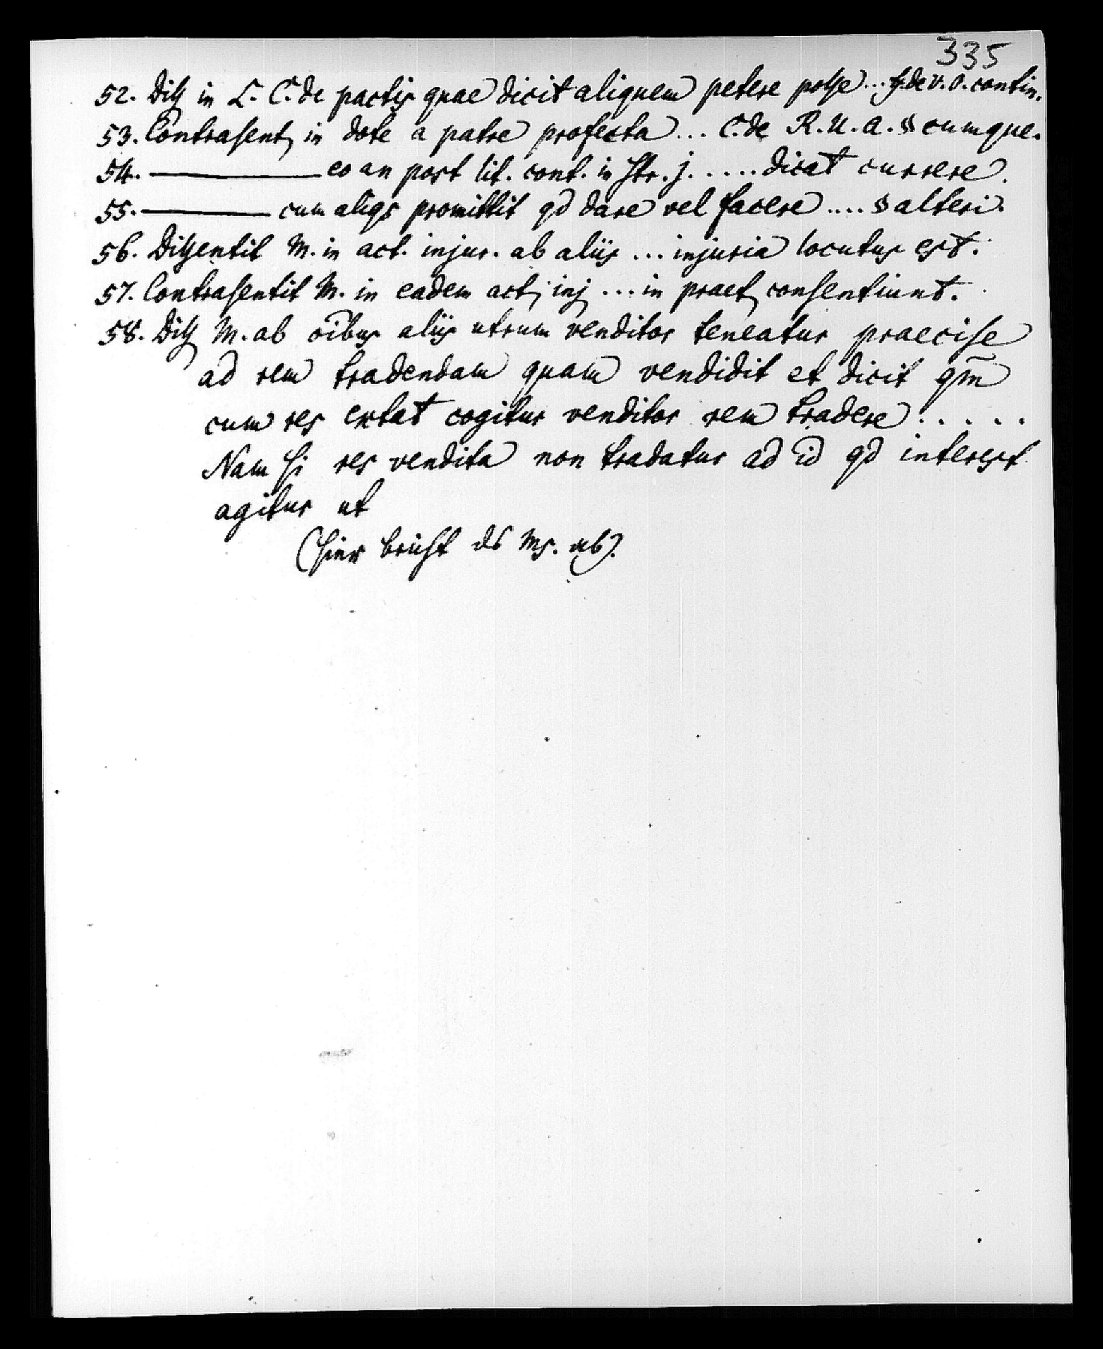 335
52. Diss in L. C. de pactis quae dicit aliquem petere posse ... ff. de v. o. contin.
53. Contrasent, in dote a patre profecta ... C. de R. U. A. § cumque.
54. ———— eo an post lit. cont. in str. j. ..... dicat currere.
55. ———— cum aliqs promittit qd dare vel facere .... § alteri.
56. Dissentit M. in act. injur. ab aliis ... injuria locutus est.
57. Contrasentit M. in eadem act, inj ... in praet, consentiunt.
58. Diss M. ab oībus aliis utrum venditor teneatur praecise
ad rem tradendam quam vendidit et dicit qm̄
cum res extat cogitur venditor rem tradere . . . . .
Nam si res vendita non tradatur ad id qd interest
agitur ut
(hier bricht ds Ms. ab).